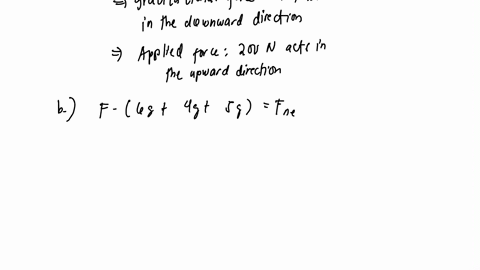 in the downward direction
⇒ Applied force: 200 N acts in
the upward direction
b.) F - (6g + 4g + 5g) = Fne